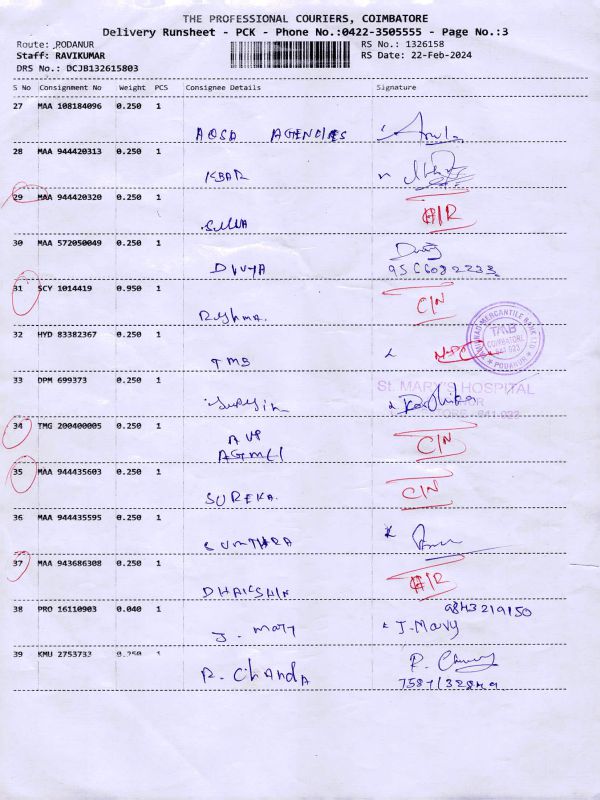 THE PROFESSIONAL COURIERS, COIMBATORE
Delivery Runsheet - PCK - Phone No.:0422-3505555 - Page No.:3
Route: PODANUR RS No.: 1326158
Staff: RAVIKUMAR RS Date: 22-Feb-2024
DRS No.: DCJB132615803
S No Consignment No Weight PCS Consignee Details Signature
27 MAA 108184096 0.250 1
AQSA AGENCIES
28 MAA 944420313 0.250 1
KBAR
29 MAA 944420320 0.250 1
H/R
30 MAA 572050049 0.250 1
DIVYA
31 SCY 1014419 0.950 1
Reshma. C/N
32 HYD 83382367 0.250 1
TMB
TAMILNAD MERCANTILE BANK LTD
TMB
COIMBATORE
641 023
* PODANUR *
33 DPM 699373 0.250 1
St. MARY'S HOSPITAL
34 TMG 200400005 0.250 1
C/N
35 MAA 944435603 0.250 1
SUREKA. C/N
36 MAA 944435595 0.250 1
SUMITHRA
37 MAA 943686308 0.250 1
DHAKSHIN H/R
38 PRO 16110903 0.040 1
9843219150
J. Mary J. Mary
39 KMU 2753733 0.250 1
R. Chanda